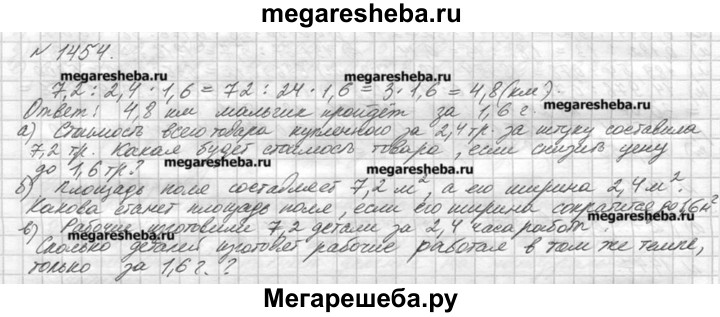 megaresheba.ru
N 1454.
megaresheba.ru megaresheba.ru
7,2 : 2,4 · 1,6 = 72 : 24 · 1,6 = 3 · 1,6 = 4,8 (км).
Ответ: 4,8 км мальчик пройдёт за 1,6 г.
megaresheba.ru megaresheba.ru
а) Стоимость всего товара купленного за 2,4 тр. за штуку составила
7,2 тр. Какая будет стоимость товара, если снизить цену
до 1,6 тр?
megaresheba.ru megaresheba.ru
б) Площадь поле составляет 7,2 м², а его ширина 2,4 м².
Какова станет площадь поля, если его ширина сократится до 1,6 м²
megaresheba.ru megaresheba.ru
в) Рабочие изготовили 7,2 детали за 2,4 часа работы.
Сколько деталей изготовят рабочие работая в том же темпе,
только за 1,6 г.?
Мегарешеба.ру